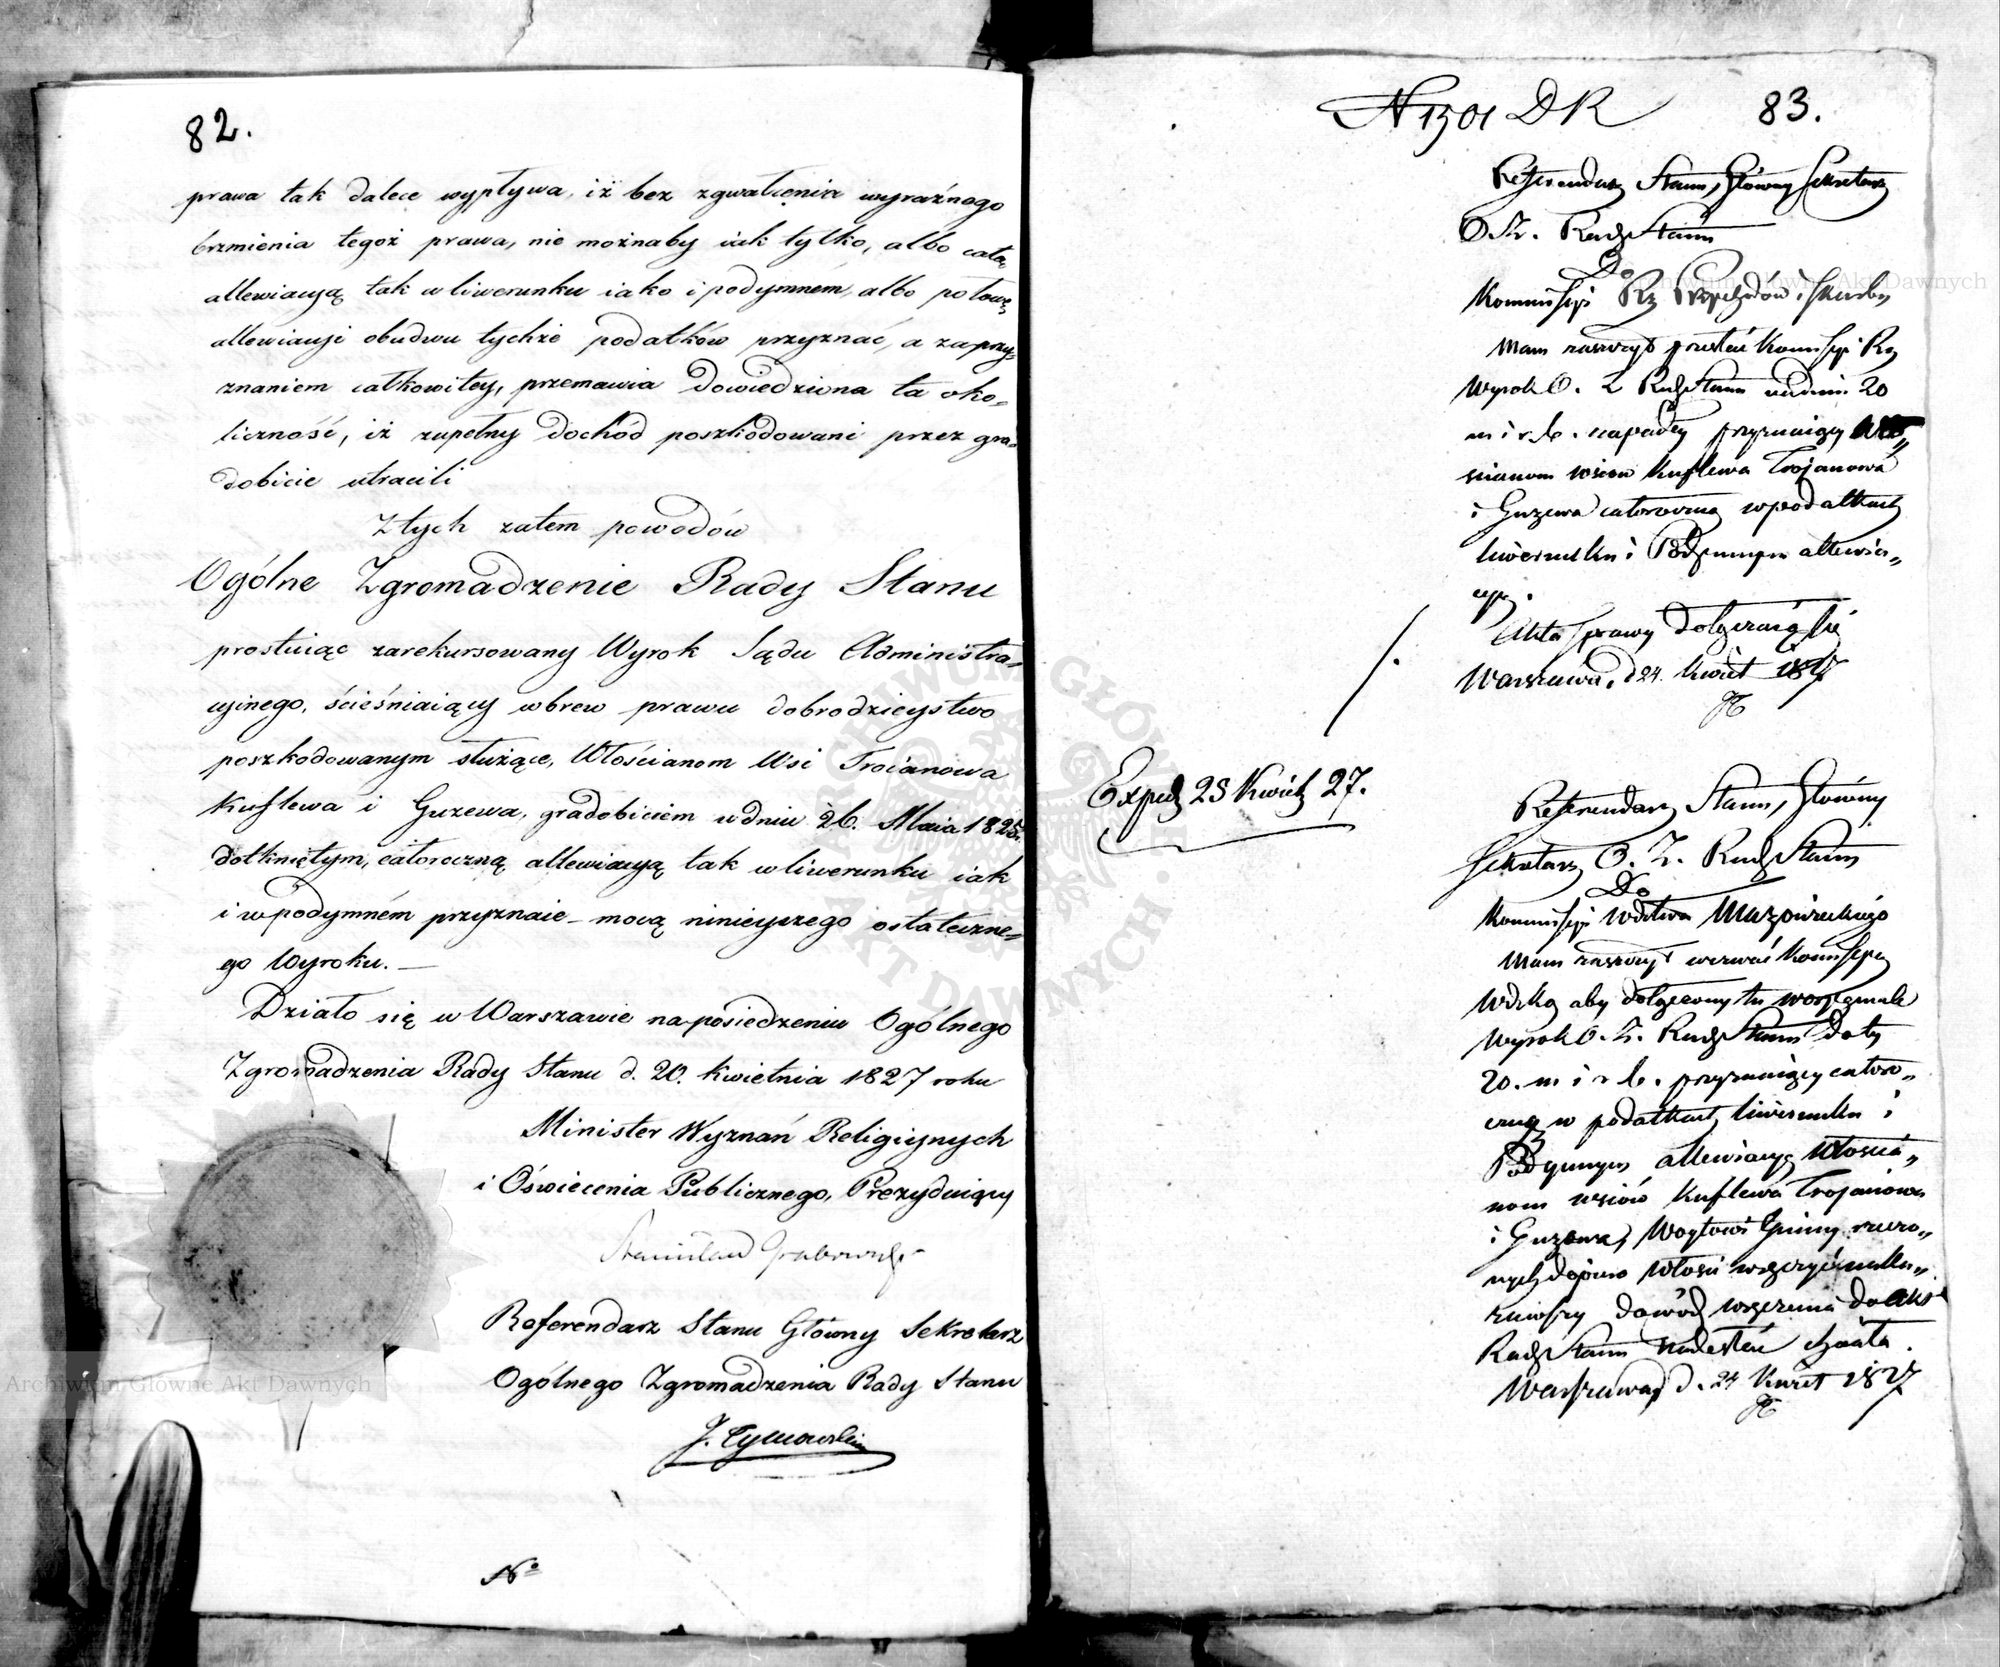 82.
prawa tak dalece wypływa, iż bez zgwałcenia wyraźnego
brzmienia tegoż prawa, nie możnaby iak tylko, albo całą
allewiacyą tak w liwerunku iako i podymném, albo połowę
allewiacyi obudwu tychże podatków przyznać, a za przy-
znaniem całkowitey, przemawia dowiedziona ta oko-
liczność, iż zupełny dochód poszkodowani przez gra-
dobicie utracili
Z tych zatem powodów
Ogólne Zgromadzenie Rady Stanu
prostuiąc zarekursowany Wyrok Sądu Administra-
cyinego, ścieśniaiący wbrew prawu dobrodzieystwo
poszkodowanym służące, Włościanom Wsi Troianowa
Kuflewa i Guzewa, gradobiciem w dniu 26. Maia 1825.
dotkniętym, całoroczną allewiacyą tak w liwerunku iak
i w podymném przyznaie – mocą ninieyszego ostateczne-
go Wyroku. —
Działo się w Warszawie na posiedzeniu Ogólnego
Zgromadzenia Rady Stanu d. 20. Kwietnia 1827 roku
Minister Wyznań Religiynych
i Oświecenia Publicznego, Prezyduiący
Stanisław Grabowski
Referendarz Stanu Główny Sekretarz
Ogólnego Zgromadzenia Rady Stanu
J. Tymowski
No
N 1501 DR 83.
Referendarz Stanu, Główny Sekretarz
O. Z. Rady Stanu
Do
Kommissyi Rz Przychodów i Skarbu
Mam zaszczyt przesłać Kommissyi Rz
Wyrok O. Z Rady Stanu w dniu 20
m i r. b. zapadły przyznaiący Wło-
ścianom wsiow Kuflewa Trojanowa
i Guzewa całoroczną w podatkach
liwerunku i Podymnym allewia-
cyą.
Akta sprawy dołączaią się
Warszawa, d 24. Kwiet 1827
Exped 25 Kwiet 27.
Referendarz Stanu, Główny
Sekretarz O. Z. Rady Stanu
Do
Kommissyi Wdztwa Mazowieckiego
Mam zaszczyt wezwać Kommissyą
Wdzką aby dołączony tu w oryginale
Wyrok O. Z. Rady Stanu daty
20. m i r b. przyznaiący całoro-
czną w podatkach liwerunku i
Podymnym allewiacyą Włościa-
nom wsiów Kuflewa Trojanowa
i Guzewa, Woytowi Gminy rzeczo-
nych dopiero włości wręczyć
dowód wręczenia do Akt
Rady Stanu nadesłać chciała.
Warszawa d. 24 Kwiet 1827
Archiwum Główne Akt Dawnych
Archiwum Główne Akt Dawnych
ARCHIWUM GŁÓWNE AKT DAWNYCH